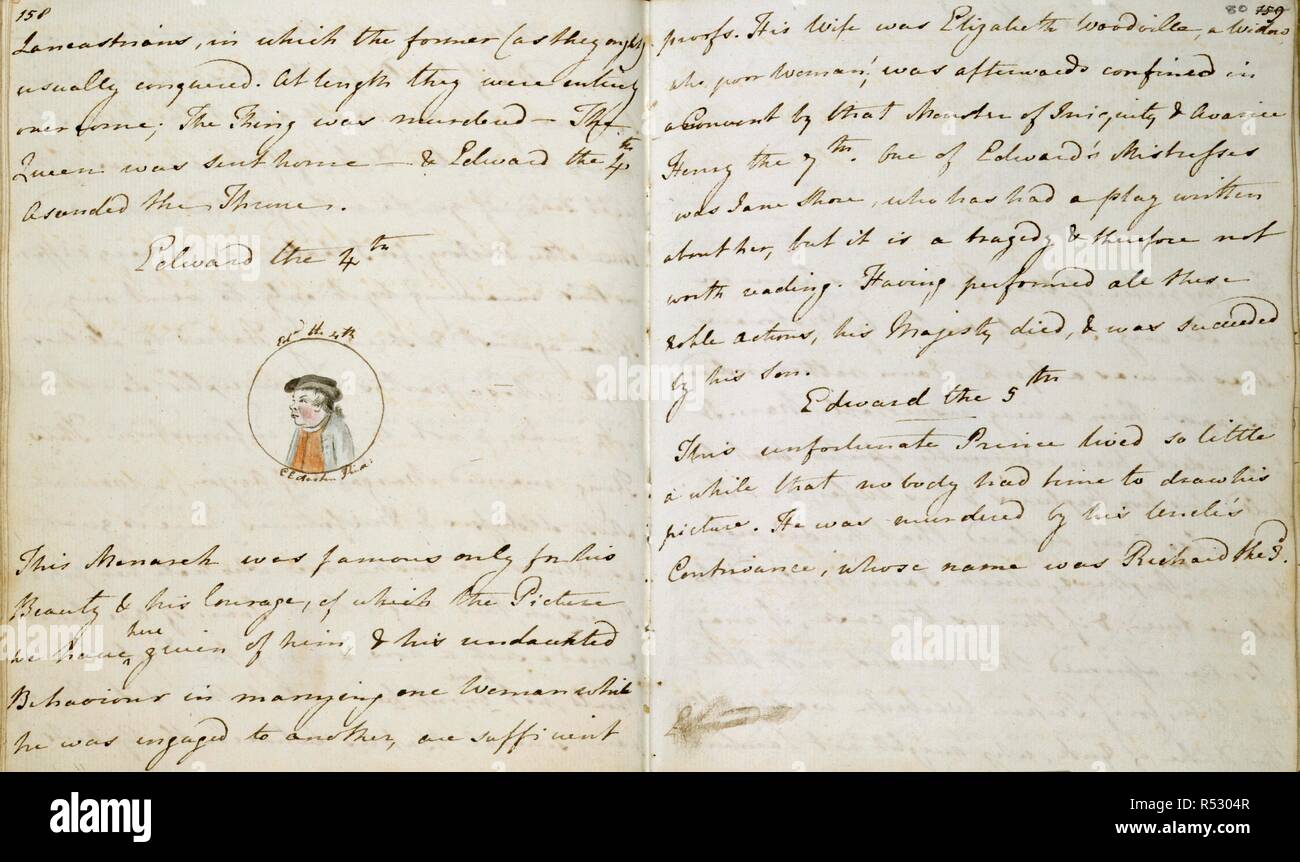 158
Lancastrians, in which the former (as they ought)
usually conquered. At length they were entirely
overcome; The King was murdered — The
Queen was sent home — & Edward the 4th
Ascended the Throne.
Edward the 4th
Ed.d th 4th
C E Austen pinx
This Monarch was famous only for his
Beauty & his Courage, of which the Picture
we have here given of him, & his undaunted
Behaviour in marrying one Woman while
he was engaged to another, are sufficient
80 159
proofs. His Wife was Elizabeth Woodville, a Widow,
who, poor Woman!, was afterwards confined in
a Convent by that Monster of Iniquity & Avarice
Henry the 7th. One of Edward's Mistresses
was Jane Shore, who has had a play written
about her, but it is a tragedy & therefore not
worth reading. Having performed all these
noble actions, his Majesty died, & was succeeded
by his Son.
Edward the 5th
This unfortunate Prince lived so little
a while that no body had time to draw his
picture. He was murdered by his Uncle's
Contrivance, whose name was Richard the 3d.
alamy
a
alamy stock photo
alamy
Image ID: R5304R
www.alamy.com